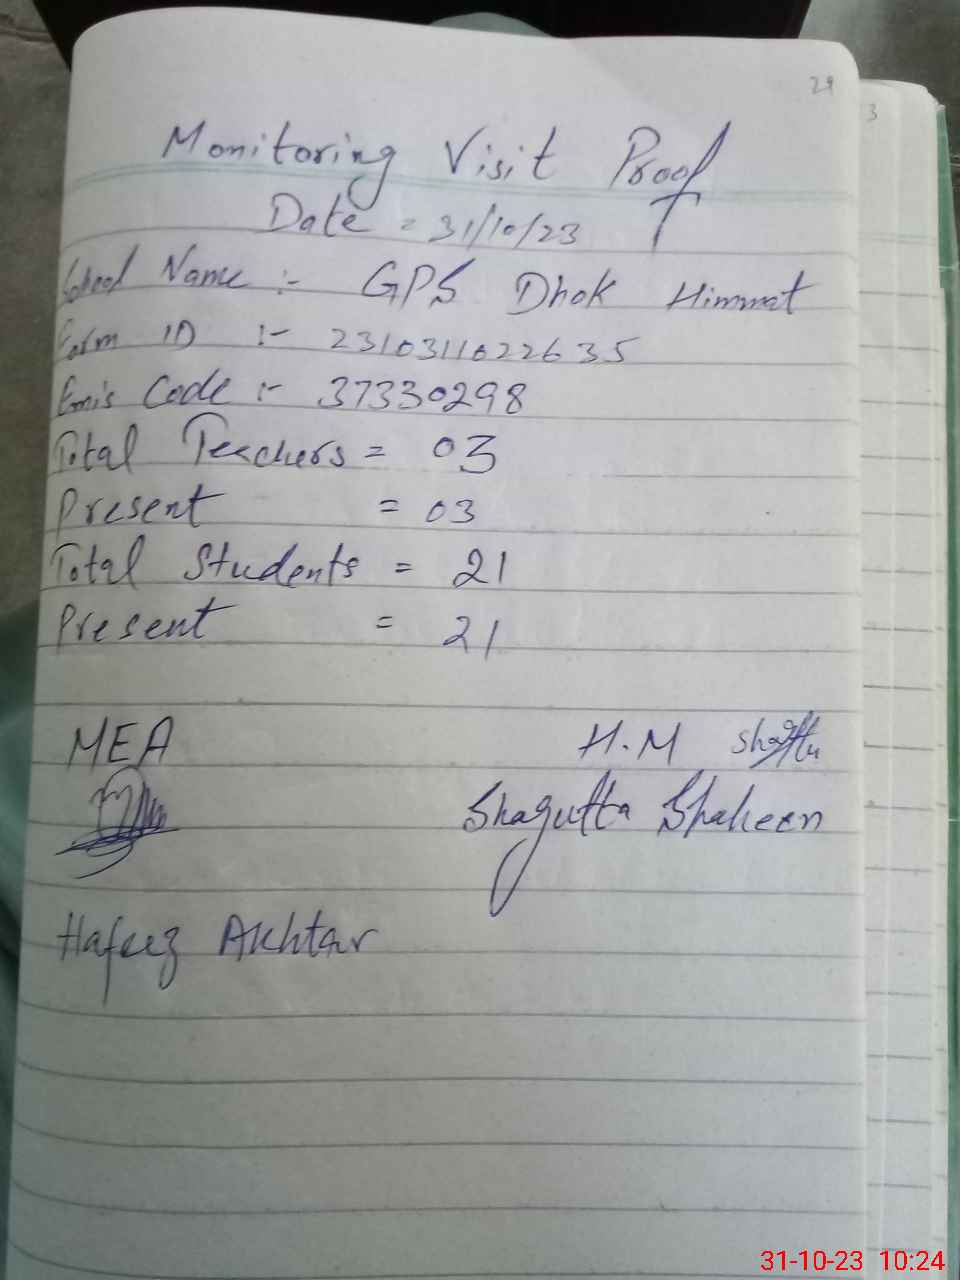 29
3
Monitoring Visit Proof
Date = 31/10/23
School Name :- GPS Dhok Himmat
Form ID :- 2310311022635
Emis Code :- 37330298
Total Teachers = 03
Present = 03
Total Students = 21
Present = 21
MEA
H.M
Shagufta Shaheen
Hafeez Akhtar
31-10-23 10:24